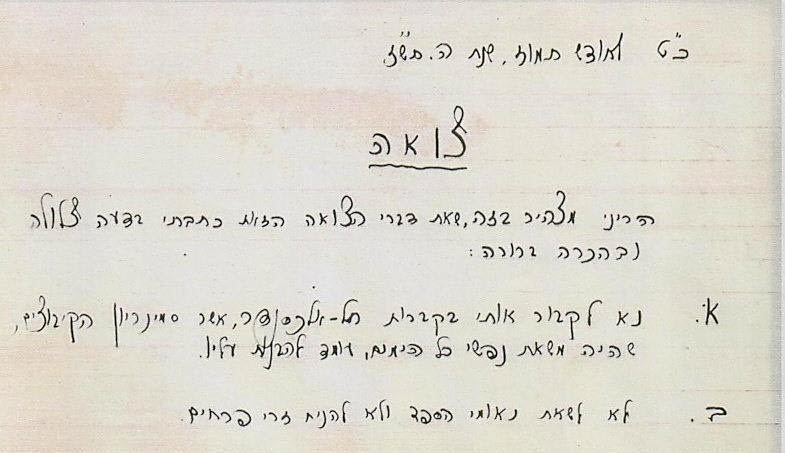 כ"ט לחודש תמוז, שנת ה. תשז.
צואה
הריני מצהיר בזה, שאת דברי הצואה הזאת כתבתי בדעה צלולה
ובהכרה ברורה:
א. נא לקבור אותי בקברות תל-אלכסנדר, אשר סמינריון הקיבוצים,
שהיה משאת נפשי כל הימים, עומד להבנות עליו.
ב. לא לשאת נאומי הספד ולא להניח זרי פרחים.